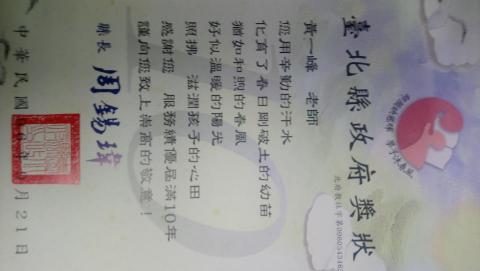 臺北縣政府獎狀
黃一峰 老師
您用辛勤的汗水
化育了春日剛破土的幼苗
猶如和煦的春風
好似溫暖的陽光
照拂 滋潤孩子的心田
感謝您 服務績優屆滿10年
謹向您致上崇高的敬意！
縣長 周錫瑋
中華民國
月21日